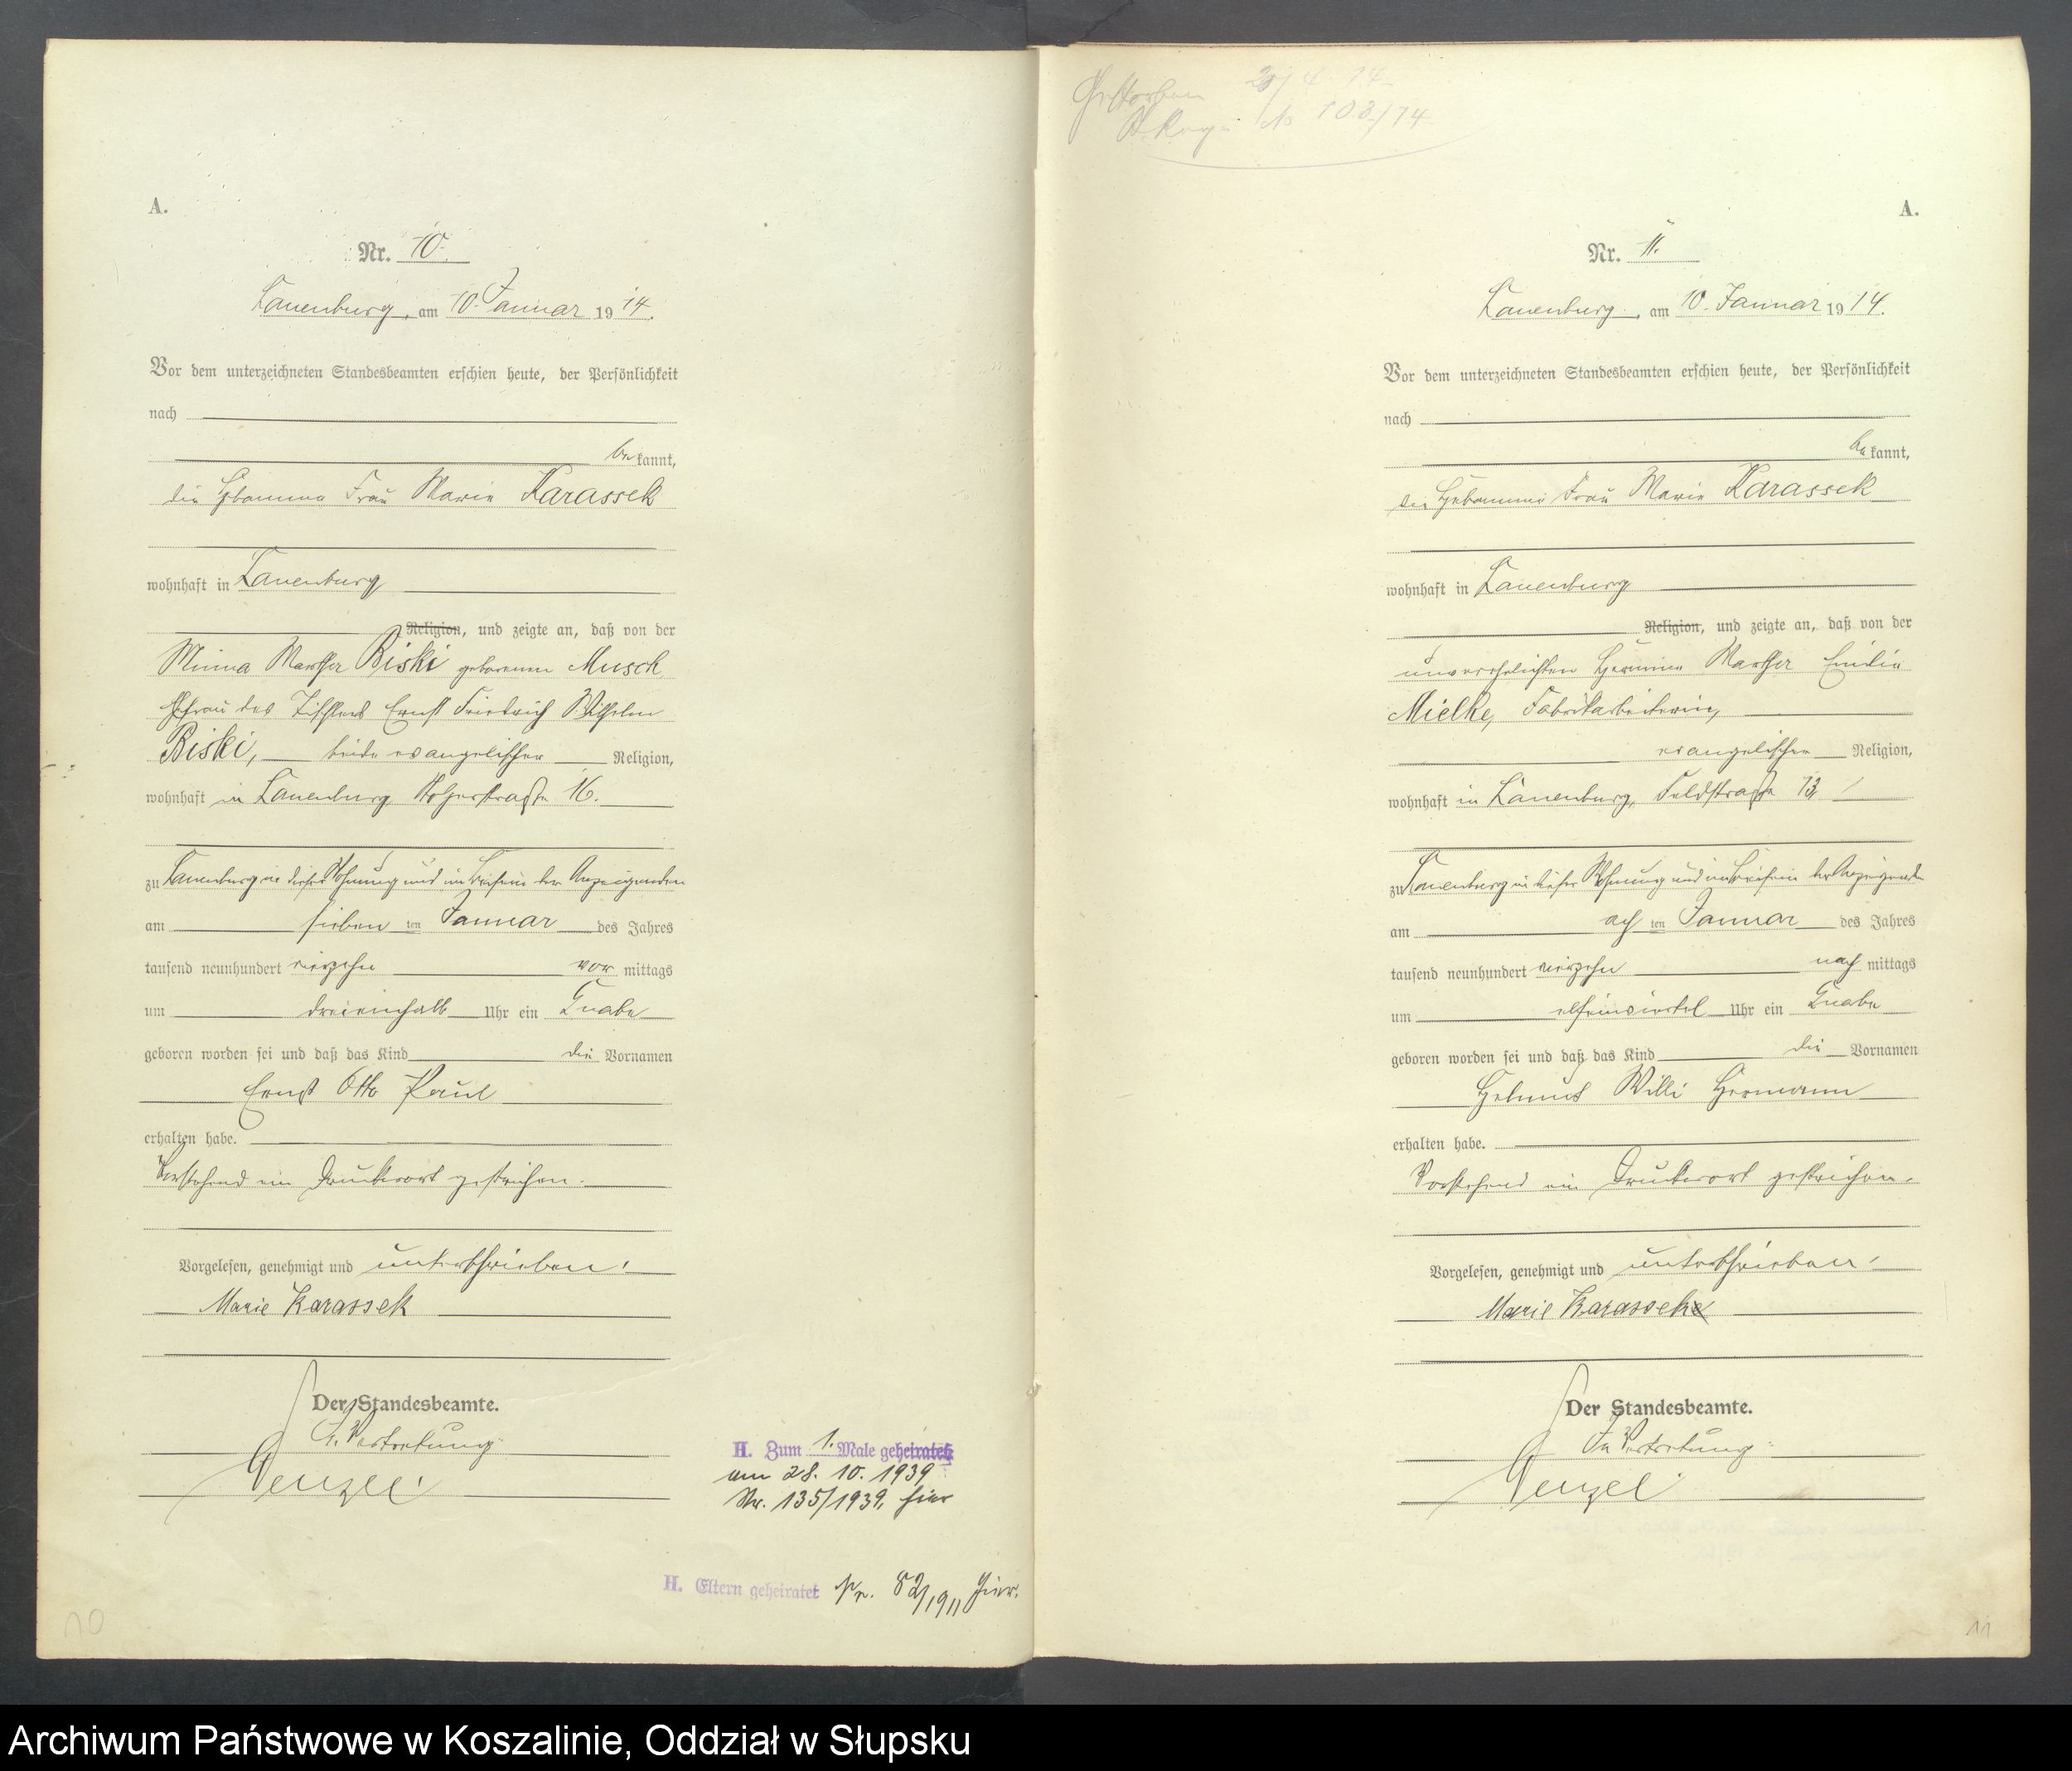 A.
Nr. 10.
Lauenburg, am 10. Januar 1914.
Vor dem unterzeichneten Standesbeamten erschien heute, der Persönlichkeit
nach
bekannt,
die Hebamme Frau Marie Karassek
wohnhaft in Lauenburg
Religion, und zeigte an, daß von der
Minna Martha Biski geborenen Musch
Ehefrau des Tischlers Ernst Friedrich Wilhelm
Biski, beide evangelischer Religion,
wohnhaft in Lauenburg, Holzerstraße 16.
zu Lauenburg in dieser Wohnung und im Beisein der Anzeigenden
am sieben ten Januar des Jahres
tausend neunhundert vierzehn vormittags
um dreieinhalb Uhr ein Knabe
geboren worden sei und daß das Kind die Vornamen
Ernst Otto Paul
erhalten habe.
Vorstehend ein Druckwort gestrichen.
Vorgelesen, genehmigt und unterschrieben.
Marie Karassek
Der Standesbeamte.
In Vertretung.
Wenzel
H. Zum 1. Male geheiratet
am 28. 10. 1939
Nr. 135/1939, hier
H. Eltern geheiratet Nr. 82/1911 hier.
10
Gestorben 20/4 14
St. Reg. No 103/14
A.
Nr. 11.
Lauenburg, am 10. Januar 1914.
Vor dem unterzeichneten Standesbeamten erschien heute, der Persönlichkeit
nach
bekannt,
die Hebamme Frau Marie Karassek
wohnhaft in Lauenburg
Religion, und zeigte an, daß von der
unverehelichten Hermine Martha Emilie
Mielke, Fabrikarbeiterin,
evangelischer Religion,
wohnhaft in Lauenburg, Feldstraße 13,
zu Lauenburg in dieser Wohnung und im Beisein der Anzeigenden
am ach ten Januar des Jahres
tausend neunhundert vierzehn nachmittags
um elfeinviertel Uhr ein Knabe
geboren worden sei und daß das Kind die Vornamen
Helmut Willi Hermann
erhalten habe.
Vorstehend ein Druckwort gestrichen.
Vorgelesen, genehmigt und unterschrieben.
Marie Karassek
Der Standesbeamte.
In Vertretung.
Wenzel
11
Archiwum Państwowe w Koszalinie, Oddział w Słupsku